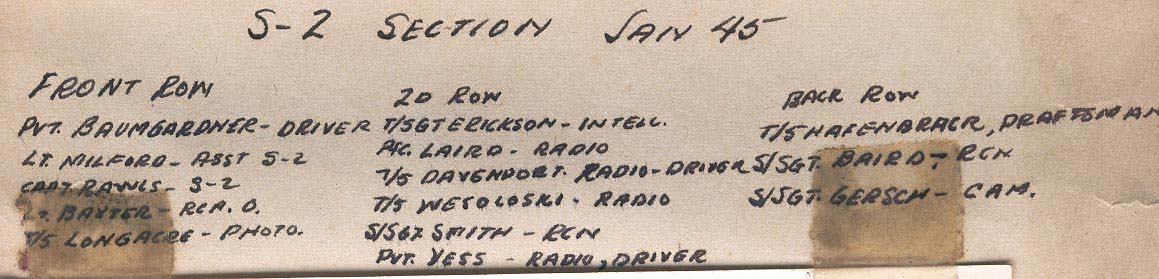 S-2 SECTION JAN 45
FRONT ROW
PVT. BAUMGARDNER - DRIVER
LT. MILFORD - ASST S-2
CAPT RAWLS - S-2
LT. BAXTER - RCN. O.
T/5 LONGACRE - PHOTO.
2D ROW
T/SGT ERICKSON - INTELL.
PFC. LAIRD - RADIO
T/5 DAVENPORT. RADIO-DRIVER
T/5 WESOLOSKI - RADIO
S/SGT. SMITH - RCN
PVT. YESS - RADIO, DRIVER
BACK ROW
T/5 HAFENBRACK, DRAFTSMAN
S/SGT. BAIRD - RCN
S/SGT. GERSCH - CAM.